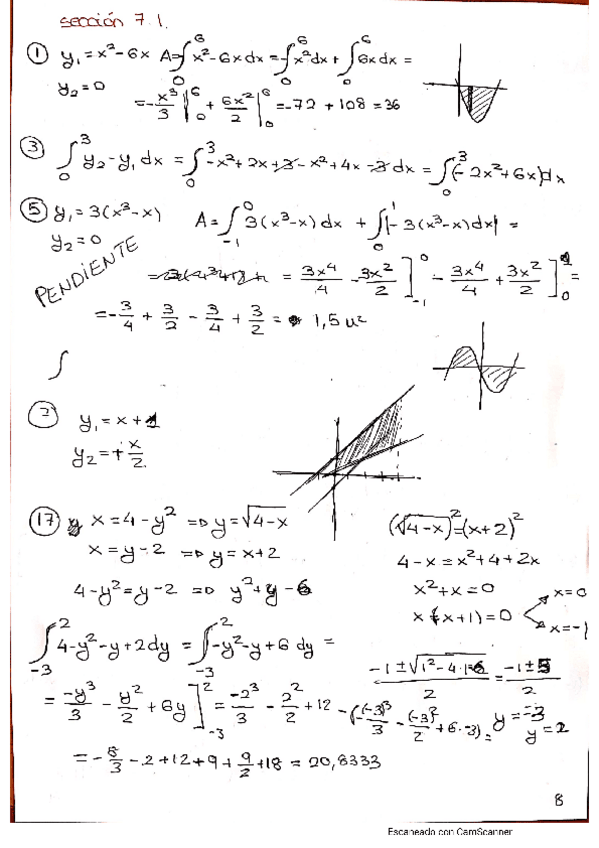 sección 7.1.
① y₁ = x²-6x A=-∫₀⁶ x²-6x dx = -∫₀⁶ x² dx + ∫₀⁶ 6x dx =
y₂ = 0 = -x³/3 |₀⁶ + 6x²/2 |₀⁶ = -72 + 108 = 36
③ ∫₀³ y₂-y₁ dx = ∫₀³ -x²+2x+3-x²+4x-3 dx = ∫₀³ (-2x²+6x) dx
⑤ y₁ = 3(x³-x) A = ∫₋₁⁰ 3(x³-x) dx + ∫₀¹ |-3(x³-x) dx| =
y₂ = 0
PENDIENTE
= 3x⁴/4 - 3x²/2 ]₋₁⁰ - 3x⁴/4 + 3x²/2 ]₀¹ =
= -3/4 + 3/2 - 3/4 + 3/2 = 1,5 u²
∫
y₁ = x + 1
y₂ = + x/2
⑰ x = 4-y² ⇒ y = √4-x
x = y-2 ⇒ y = x+2
4-y² = y-2 ⇒ y²+y-6
(√4-x)² = (x+2)²
4-x = x²+4+2x
x²+x = 0
x(x+1) = 0
x=0
x=-1
∫₋₃² 4-y²-y+2 dy = ∫₋₃² -y²-y+6 dy =
-1±√1²-4·1·6 / 2 = -1±5 / 2
y = -3
y = 2
= -y³/3 - y²/2 + 6y ]₋₃² = -2³/3 - 2²/2 + 12 - (-(-3)³/3 - (-3)²/2 + 6·-3) =
= -8/3 - 2 + 12 + 9 + 9/2 + 18 = 20,8333
8
Escaneado con CamScanner